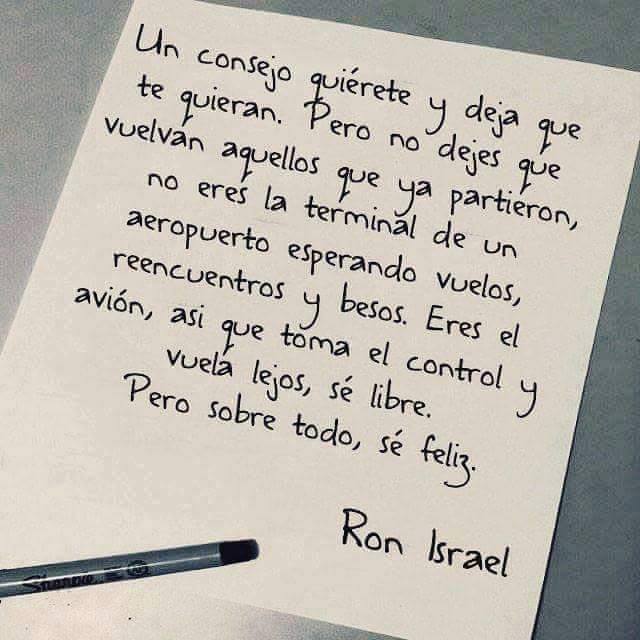 Un consejo quiérete y deja que
te quieran. Pero no dejes que
vuelvan aquellos que ya partieron,
no eres la terminal de un
aeropuerto esperando vuelos,
reencuentros y besos. Eres el
avión, asi que toma el control y
vuela lejos, sé libre.
Pero sobre todo, sé feliz.
Ron Israel